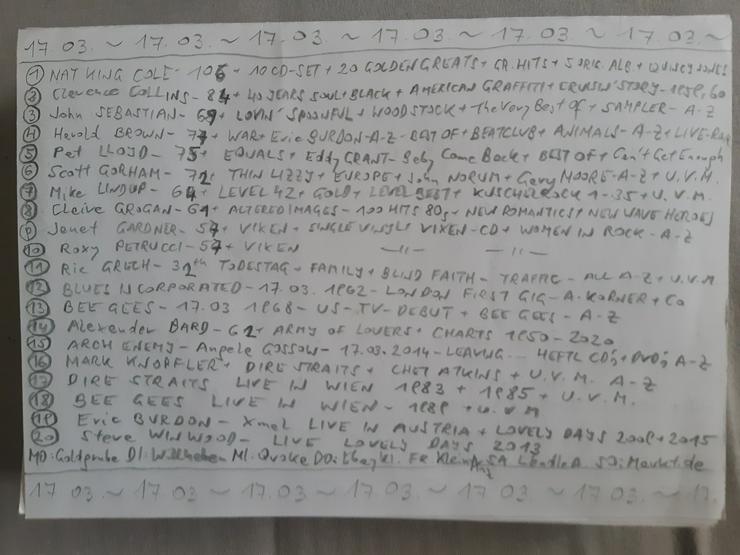 17.03. ~ 17.03. ~ 17.03. ~ 17.03. ~ 17.03. ~ 17.03. ~
1 NAT KING COLE - 106 + 10 CD-SET + 20 GOLDEN GREATS + GR. HITS + 5 ORIG. ALB. + QUINCY JONES
2 Clarence COLLINS - 84 + 40 YEARS SOUL + BLACK + AMERICAN GRAFFITI + CRUISIN' STORY - 1958, 60
3 John SEBASTIAN - 69 + LOVIN' SPOONFUL + WOODSTOCK + The Very Best Of + SAMPLER - A-Z
4 Harold BROWN - 77 + WAR + Eric BURDON - A-Z - BEST OF + BEATCLUB + ANIMALS - A-Z + LIVE -
5 Pat LLOYD - 75 + EQUALS + Eddy GRANT - Baby Come Back + BEST OF + Can't Get Enough
6 Scott GORHAM - 72 + THIN LIZZY + EUROPE + John NORUM + Gary MOORE - A-Z + U.V.M.
7 Mike LINDUP - 64 + LEVEL 42 + GOLD + LEVEL BEST + KUSCHELROCK 1-35 + U.V.M.
8 Claire GROGAN - 61 + ALTERED IMAGES - 100 HITS 80s + NEW ROMANTICS + NEW WAVE HEROES
9 Janet GARDNER - 57 + VIXEN + SINGLE VINYLS VIXEN - CD + WOMEN IN ROCK - A-Z
10 Roxy PETRUCCI - 57 + VIXEN —"— —"—
11 Ric GRECH - 32th TODESTAG + FAMILY + BLIND FAITH - TRAFFIC - ALL A-Z + U.V.M.
12 BLUES INCORPORATED - 17.03.1962 - LONDON FIRST GIG - A. KORNER + Co
13 BEE GEES - 17.03 1968 - US - TV - DEBUT + BEE GEES - A-Z
14 Alexander BARD - 62 + ARMY OF LOVERS + CHARTS 1950 - 2020
15 ARCH ENEMY - Angela GOSSOW - 17.03.2014 - LEAVING ... HEFTL CD's + DVD's A-Z
16 MARK KNOPFLER + DIRE STRAITS + CHET ATKINS + U.V.M. A-Z
17 DIRE STRAITS LIVE IN WIEN 1983 + 1985 + U.V.M.
18 BEE GEES LIVE IN WIEN - 1989 + U.V.M
19 Eric BURDON - Xmal LIVE IN AUSTRIA + LOVELY DAYS 2009 + 2015
20 Steve WINWOOD - LIVE LOVELY DAYS 2013
MO: Goldgrube DI: Willhaben MI: Quoka DO: FR Klein SA LÄNDLE SO: Markt.de
Anz
17 03. ~ 17.03. ~ 17.03. ~ 17.03. ~ 17.03. ~ 17.03. ~ 17.